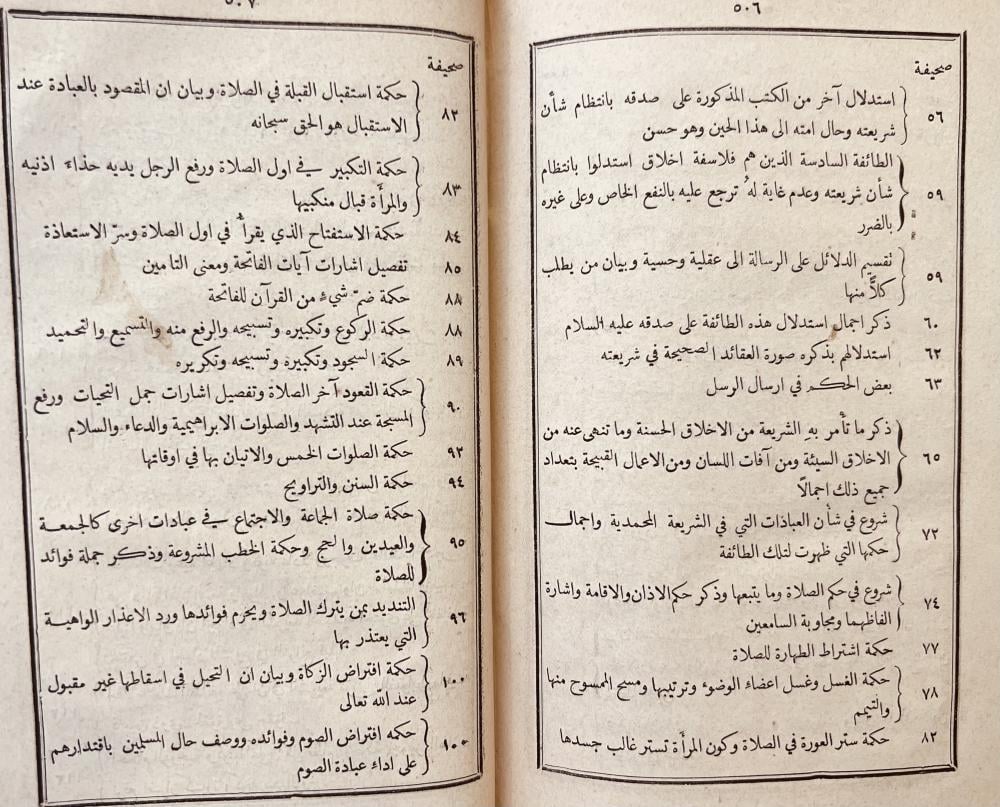 ٥٠٦
صحيفة
٥٦ استدلال آخر من الكتب المذكورة على صدقه بانتظام شأن
شريعته وحال امته الى هذا الحين وهو حسن
الطائفة السادسة الذين هم فلاسفة اخلاق استدلوا بانتظام
٥٩ شأن شريعته وعدم غاية له ترجع عليه بالنفع الخاص وعلى غيره
بالضرر
٥٩ تقسيم الدلائل على الرسالة الى عقلية وحسية وبيان من يطلب
كلاًّ منها
٦٠ ذكر اجمال استدلال هذه الطائفة على صدقه عليه السلام
٦٢ استدلالهم بذكره صورة العقائد الصحيحة في شريعته
٦٣ بعض الحكم في ارسال الرسل
ذكر ما تأمر به الشريعة من الاخلاق الحسنة وما تنهى عنه من
٦٥ الاخلاق السيئة ومن آفات اللسان ومن الاعمال القبيحة بتعداد
جميع ذلك اجمالاً
٧٢ شروع في شأن العباذات التي في الشريعة المحمدية واجمال
حكمها التي ظهرت لتلك الطائفة
٧٤ شروع في حكم الصلاة وما يتبعها وذكر حكم الاذان والاقامة واشارة
الفاظهما ومجاوبة السامعين
٧٧ حكمة اشتراط الطهارة للصلاة
٧٨ حكمة الغسل وغسل اعضاء الوضوء وترتيبها ومسح الممسوح منها
والتيمم
٨٢ حكمة ستر العورة في الصلاة وكون المرأة تستر غالب جسدها
٥٠٧
صحيفة
٨٢ حكمة استقبال القبلة في الصلاة وبيان ان المقصود بالعبادة عند
الاستقبال هو الحق سبحانه
٨٣ حكمة التكبير في اول الصلاة ورفع الرجل يديه حذاء اذنيه
والمرأة قبال منكبيها
٨٤ حكمة الاستفتاح الذي يقرأ في اول الصلاة وسرّ الاستعاذة
٨٥ تفصيل اشارات آيات الفاتحة ومعنى التامين
٨٨ حكمة ضمّ شيء من القرآن للفاتحة
٨٨ حكمة الركوع وتكبيره وتسبيحه والرفع منه والتسميع والتحميد
٨٩ حكمة السجود وتكبيره وتسبيحه وتكريره
٩٠ حكمة القعود آخر الصلاة وتفصيل اشارات جمل التحيات ورفع
المسبحة عند التشهد والصلوات الابراهيمية والدعاء والسلام
٩٣ حكمة الصلوات الخمس والاتيان بها في اوقاتها
٩٤ حكمة السنن والتراويح
حكمة صلاة الجماعة والاجتماع في عبادات اخرى كالجمعة
٩٥ والعيدين والحج وحكمة الخطب المشروعة وذكر جملة فوائد
للصلاة
٩٦ التنديد بمن يترك الصلاة ويحرم فوائدها ورد الاعذار الواهية
التي يعتذر بها
١٠٠ حكمة افتراض الزكاة وبيان ان التحيل في اسقاطها غير مقبول
عند الله تعالى
١٠٠ حكمه افتراض الصوم وفوائده ووصف حال المسلمين باقتدارهم
على اداء عبادة الصوم